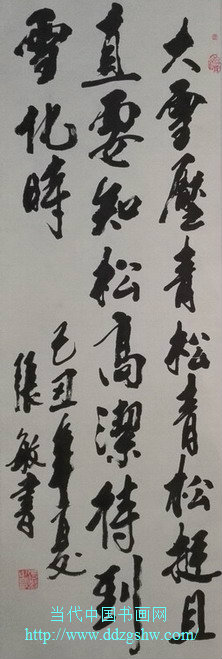 大雪壓青松青松挺且
直要知松高潔待到
雪化時
己丑年夏
張敏書
当代中国书画网
http://www.ddzgshw.com/